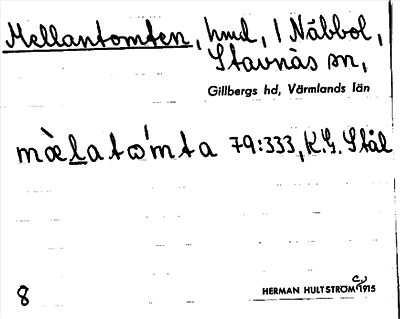 Mellantomten, hmd, 1 Näbbol,
Stavnäs sn,
Gillbergs hd, Värmlands län
mæ̀latɷ́mta 79:333, K.G. Stål
8
HERMAN HULTSTRÖM c. 1915